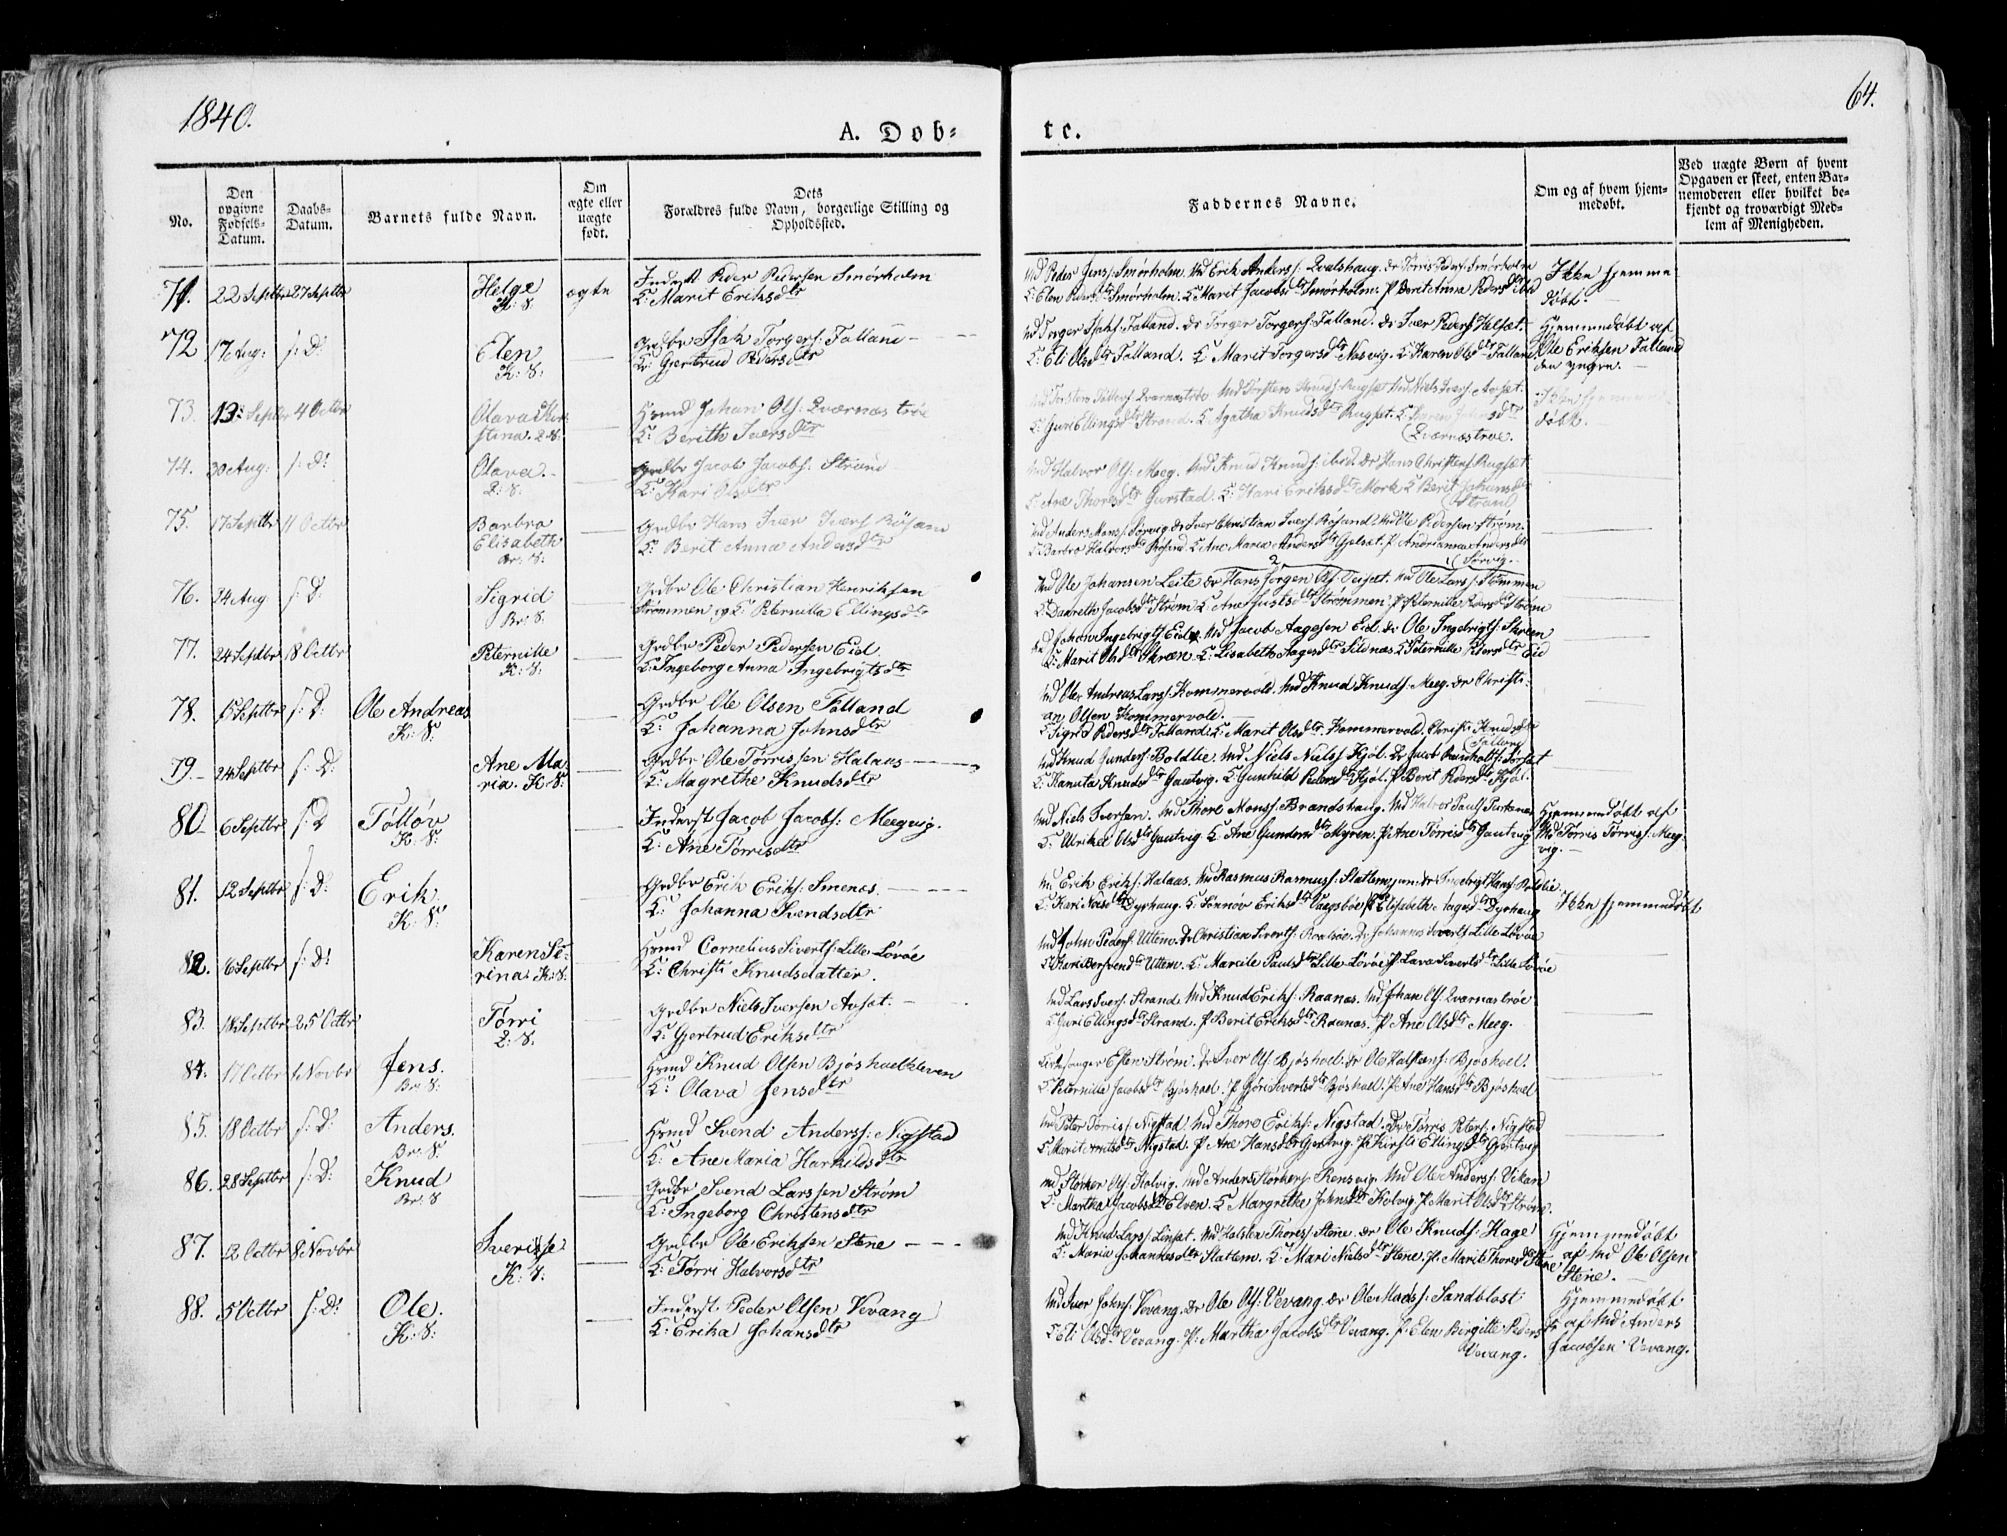 1840.
64.
A. Dob-
te.
No.
Den opgivne Fødsels-Datum.
Daabs-Datum.
Barnets fulde Navn.
Om ægte eller uægte født.
Dets Forældres fulde Navn, borgerlige Stilling og Opholdssted.
Faddernes Navne.
Om og af hvem hjemmedøbt.
Ved uægte Børn af hvem Opgaven er skeet, enten Barnemoderen eller hvilket bekjendt og troværdigt Medlem af Menigheden.
71. 22 Septbr 27 Septbr Helge K: S: ægte
Inderst Peder Pedersen Smørholm
K: Marit Eriksdtr
Md Peder Jens: Smørholm. Md Erik Anders: Qvalshaug. Dr Tørris Peders: Smørholm
K: Elen Peders dtr Smørholm. K: Marit Jacobsdtr Smørholm. P Berit Anna Pedersdtr ibid
Ikke hjemme
døbt.
72 17 Aug: s: D: Elen K: S:
Grdbr Isak Torgers: Falland
K: Gjertrud Pedersdtr
Md Torger Isaks: Falland. Dr Torger Torgers: Falland. Dr Iver Peders: Helset.
K: Eli Olsdtr Falland. K: Marit Torgersdtr Nasvig. K: Karen Olsdtr Falland
Hjemmedøbt af
Ole Eriksen Falland
den yngre.
73. 13: Septbr 4 Octbr Olava Kir-
stina. Q: S:
Hsmd Johan Ols: Qværnæstrøe
K: Berith Iversdtr
K: Guri Ellingsdtr Strand. K: Agatha Knudsdtr Rugset. K: Karen Johnsdtr
Qværnæstrøe.
Ikke hjemme
døbt.
74. 30 Aug: s: D: Olava. Q: S:
Grdbr Jacob Jacobs: Strand
K: Kari Olsdtr
Md Halvor Ols: Meeg. Md Knud Knuds: ibid. Dr Hans Christens: Rugset
K: Ane Thoresdtr Gurstad. K: Kari Eriksdtr Mork. K: Berit Johansdtr
Strand
75. 17 Septbr 11 Octbr Barbro
Elisabeth Br: S:
Grdbr Hans Iver Ivers: Røsand
K: Berit Anna Andersdtr
Md Anders Mons: Sørvig. Dr Iver Christian Ivers: Røsand. Md Ole Pedersen Strøm.
K: Barbro Halvorsdtr Røsand. K: Ane Maria Andersdtr Gjelset. P: Andrianna Andersdtr
Sørvig.
76. 24 Aug s: D: Sigrid Br: S:
Grdbr Ole Christian Henriksen
Strømmen og K: Peternilla Ellingsdtr
Md Ole Johansen Leite. Dr Hans Jørgen Ols: Teiset. Md Ole Lars: Strømmen
K: Danreth Jacobsdtr Strøm. K: Ane Justsdtr Strømmen. P: Peternille Pedersdtr Strøm
77. 24 Septbr 18 Octbr Peternille K: S:
Grdbr Peder Pedersen Eid.
K: Ingeborg Anna Ingebrigtsdtr
Md Johan Ingebrigts: Eide. Md Jacob Aagesen Eid. Dr Ole Ingebrigts: Skreen
K: Marit Olsdtr Skræen. K: Lisabeth Aagesdtr Sildnæs. K: Peternille Pedersdtr Eid
78. 15 Septbr s: D: Ole Andreas K: S:
Grdbr Ole Olsen Falland
K: Johanna Johnsdtr
Md Ole Andreas Lars: Hommervold. Md Knud Knuds: Meeg. Dr Christi-
an Olsen Hommervold.
K: Sigrid Pedersdtr Falland. K: Marit Olsdtr Hommervold. Christi Knudsdtr
Falland
79. 24 Septbr s: D: Ane Ma-
ria. K: S:
Grdbr Ole Tørrissen Halaas
K: Magrethe Knudsdtr
Md Knud Gunders: Boldlie. Md Niels Niels: Kjøl. Dr Jacob Reinholts: Torset
K: Kanuta Knudsdtr Gautvig. K: Gunhild Pedersdtr Kjøl. P: Berit Pedersdtr Kjøl.
80 6 Septbr s: D Folløv K: S:
Inderst Jacob Jacobs: Meegvig.
K: Ane Tørrisdtr
Md Niels Iversen. Md Thore Mons: Brandshaug. Md Halvor Pauls:
K: Ulrikke Olsdtr Gautvig. K: Ane Gundersdtr Myren. P: Ane Tørrisdtr Gautvig
Hjemmedøbt af
Md Tørris Tørris: Meeg-
vig.
81. 12 Septbr s: D: Erik K: S:
Grdbr Erik Eriks: Smenes.
K: Johanna Svendsdtr
Md Erik Eriks: Halaas. Md Rasmus Rasmuss: Slatlem jun: Dr Ingebrigt Hans: Boldlie
K: Kari Nilsdtr Dyrhaug. K: Sønnøv Eriksdtr Vaagsbøe. P: Elisabeth Aagesdtr Dyrhaug
Ikke hjemmedøbt
82. 6 Septbr s: D: Karen Se-
rina. K: S:
Hsmd Cornelius Siverts: Lille Lørøe
K: Christi Knudsdatter.
Md John Peders: Uttem. Dr Christian Siverts: Roalsøe. Dr Johannes Siverts: Lille Lørøe
K: Kari Bersvendsdtr Uttem. K: Marcile Paulsdtr Lille Lørøe. P: Lava Sivertsdtr Lille Lørøe
83. 18 Septbr 25 Octbr Torri Q: S:
Grdbr Niels Iversen Aaset.
K: Gjertrud Eriksdtr
Md Lars Ivers: Strand. Md Knud Eriks: Raanas. Md Johan Ols: Qværnæstrøe
K: Guri Ellingsdtr Strand. P Berit Eriksdtr Raanas. P: Ane Olsdtr Meeg.
84. 17 Octbr 1 Novbr Jens. Br: S:
Hsmd Knud Olsen Bjøshoelkleven
K: Olava Jensdtr
Kirkesanger Esten Strøm. Dr Iver Ols: Bjøshoel. Dr Ole Halstens: Bjøshoel.
K: Peternilla Jacobsdtr Bjøshoel. P: Gjøri Sivertsdtr Bjøshoel. P: Ane Hansdtr Bjøshoel
85. 18 Octbr s: D: Anders. Br: S:
Hsmd Svend Anders: Nigstad
K: Ane Maria Harhildsdtr
Md Peter Tørris: Nigstad. Md Thore Eriks: Nigstad. Dr Tørris Peters: Nigstad
K: Marit dtr Nigstad. P: Ane Hansdtr Gjøtvig. P: Kirsti Ellingsdtr Gjøtvig
86. 28 Septbr s: D: Knud Br: S
Grdbr Svend Larssen Strøm
K: Ingeborg Christensdtr
Md Størker Ols: Holvig. Md Anders Størkers: Rensvig. Md Ole Anders: Vikan
K: Martha Jacobsdtr Elven. K: Margrethe Johnsdtr Holvig. P: Marit Olsdtr Strøm.
87. 12 Octbr 8 Novbr Sverisse K: S:
Grdbr Ole Eriksen Stene
K: Torri Halvorsdtr
Md Knud Lars: Linset. Md Halsten Thores: Stene. Dr Ole Knuds: Hage
K: Maria Johannesdtr Slatlem. K: Mari Nielsdtr Stene. P: Marit Thoresdtr Stene
Hjemmedøbt
af Md Ole Olsen
Stene.
88. 5 Octbr s: D: Ole. K: S:
Inderst Peder Olsen Vevang
K: Erika Johansdtr
Md Iver Johns: Vevang. Dr Ole Ols: Vevang. Dr Ole Mads: Sandblost
K: Eli Olsdtr Vevang. P: Martha Jacobsdtr Vevang. P: Elen Birgitte Pedersdtr
Vevang.
Hjemmedøbt
af Md Anders
Jacobsen Vevang.